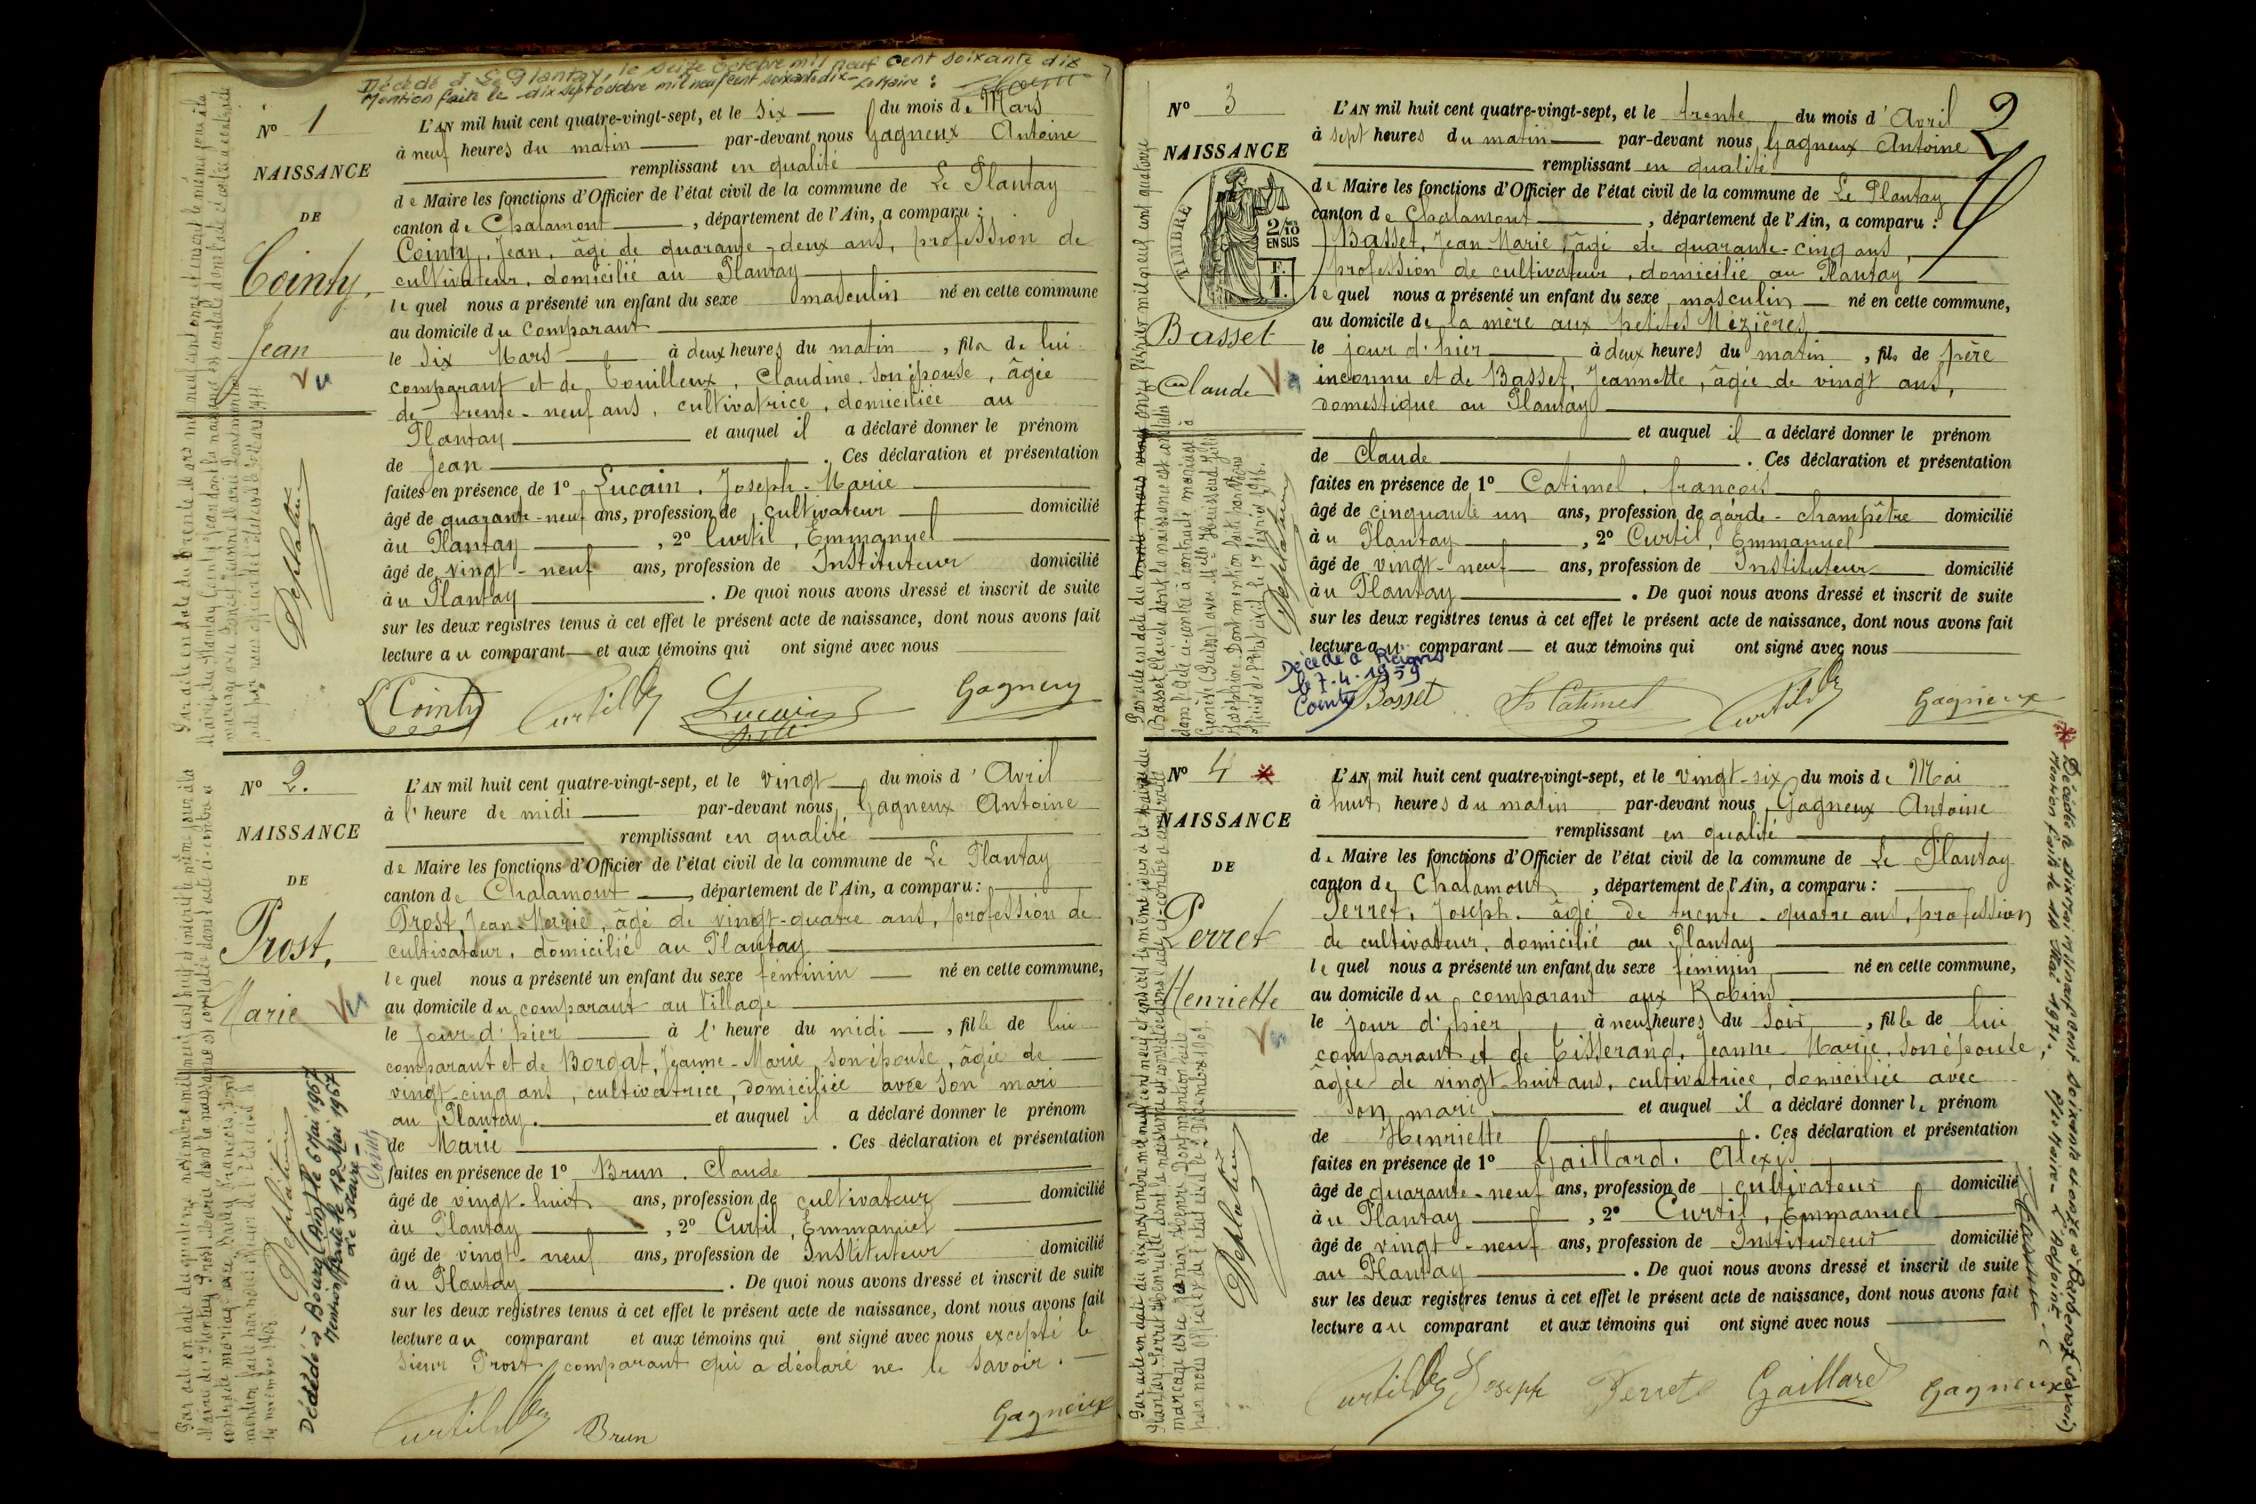 Décédé à Le Plantay, le seize octobre mil neuf cent soixante dix
Mention faite le dix sept octobre mil neuf cent soixante dix Le Maire :
N° 1
NAISSANCE
DE
Cointy,
Jean
Vu
L'AN mil huit cent quatre-vingt-sept, et le six du mois de Mars
à neuf heures du matin par-devant nous Gagneux Antoine
remplissant en qualité
de Maire les fonctions d'Officier de l'état civil de la commune de Le Plantay
canton de Chalamont, département de l'Ain, a comparu :
Cointy, Jean, âgé de quarante-deux ans, profession de
cultivateur, domicilié au Plantay
lequel nous a présenté un enfant du sexe masculin né en cette commune
au domicile du comparant
le six Mars à deux heures du matin, fils de lui
comparant et de Touilleux, Claudine son épouse, âgée
de trente-neuf ans, cultivatrice, domiciliée au
Plantay et auquel il a déclaré donner le prénom
de Jean. Ces déclaration et présentation
faites en présence de 1° Lucain, Joseph-Marie
âgé de quarante-neuf ans, profession de cultivateur domicilié
au Plantay, 2° Curtil, Emmanuel
âgé de vingt-neuf ans, profession de Instituteur domicilié
au Plantay. De quoi nous avons dressé et inscrit de suite
sur les deux registres tenus à cet effet le présent acte de naissance, dont nous avons fait
lecture au comparant et aux témoins qui ont signé avec nous
Cointy Curtil Lucain Gagneux
Deplatin
N° 2.
NAISSANCE
DE
Prost,
Marie
Vu
L'AN mil huit cent quatre-vingt-sept, et le vingt du mois d'Avril
à l'heure de midi par-devant nous Gagneux Antoine
remplissant en qualité
de Maire les fonctions d'Officier de l'état civil de la commune de Le Plantay
canton de Chalamont, département de l'Ain, a comparu :
Prost, Jean-Marie, âgé de vingt-quatre ans, profession de
cultivateur, domicilié au Plantay
lequel nous a présenté un enfant du sexe féminin né en cette commune,
au domicile du comparant au Village
le jour d'hier à l'heure du midi, fille de lui
comparant et de Borgat, Jeanne-Marie son épouse, âgée de
vingt-cinq ans, cultivatrice, domiciliée avec son mari
au Plantay. et auquel il a déclaré donner le prénom
de Marie. Ces déclaration et présentation
faites en présence de 1° Brun, Claude
âgé de vingt-huit ans, profession de cultivateur domicilié
au Plantay, 2° Curtil, Emmanuel
âgé de vingt-neuf ans, profession de Instituteur domicilié
au Plantay. De quoi nous avons dressé et inscrit de suite
sur les deux registres tenus à cet effet le présent acte de naissance, dont nous avons fait
lecture au comparant et aux témoins qui ont signé avec nous excepté le
sieur Prost, comparant qui a déclaré ne le savoir.
Curtil Brun Gagneux
Deplatin
Décédée à Bourg (Ain) le 6 Mai 1967
Mention faite le 12 Mai 1967
Le Maire
2
N° 3
NAISSANCE
DE
TIMBRE
2/10
EN SUS
F.
1.
Basset
Claude
Vu
L'AN mil huit cent quatre-vingt-sept, et le trente du mois d'Avril
à sept heures du matin par-devant nous Gagneux Antoine
remplissant en qualité
de Maire les fonctions d'Officier de l'état civil de la commune de Le Plantay
canton de Chalamont, département de l'Ain, a comparu :
Basset, Jean Marie, âgé de quarante-cinq ans,
profession de cultivateur, domicilié au Plantay
lequel nous a présenté un enfant du sexe masculin né en cette commune,
au domicile de la mère aux petites Mézières
le jour d'hier à deux heures du matin, fils de père
inconnu et de Basset, Jeannette, âgée de vingt ans,
domestique au Plantay
et auquel il a déclaré donner le prénom
de Claude. Ces déclaration et présentation
faites en présence de 1° Catimel, françois
âgé de cinquante un ans, profession de garde-champêtre domicilié
au Plantay, 2° Curtil, Emmanuel
âgé de vingt-neuf ans, profession de Instituteur domicilié
au Plantay. De quoi nous avons dressé et inscrit de suite
sur les deux registres tenus à cet effet le présent acte de naissance, dont nous avons fait
lecture au comparant et aux témoins qui ont signé avec nous
Décédé à
le 7.4.1959
Cointy
Basset F Catimel Curtil Gagneux
Deplatin
N° 4
NAISSANCE
DE
Perret
Henriette
Vu
L'AN mil huit cent quatre-vingt-sept, et le vingt-six du mois de Mai
à huit heures du matin par-devant nous Gagneux Antoine
remplissant en qualité
de Maire les fonctions d'Officier de l'état civil de la commune de Le Plantay
canton de Chalamont, département de l'Ain, a comparu :
Perret, Joseph, âgé de trente-quatre ans, profession
de cultivateur, domicilié au Plantay
lequel nous a présenté un enfant du sexe féminin né en cette commune,
au domicile du comparant aux Robins
le jour d'hier à neuf heures du soir, fille de lui
comparant et de Tisserand, Jeanne-Marie, son épouse
âgée de vingt-huit ans, cultivatrice, domiciliée avec
son mari et auquel il a déclaré donner le prénom
de Henriette. Ces déclaration et présentation
faites en présence de 1° Gaillard, Alexis
âgé de quarante-neuf ans, profession de cultivateur domicilié
au Plantay, 2° Curtil, Emmanuel
âgé de vingt-neuf ans, profession de Instituteur domicilié
au Plantay. De quoi nous avons dressé et inscrit de suite
sur les deux registres tenus à cet effet le présent acte de naissance, dont nous avons fait
lecture au comparant et aux témoins qui ont signé avec nous
Curtil Joseph Perret Gaillard Gagneux
Deplatin